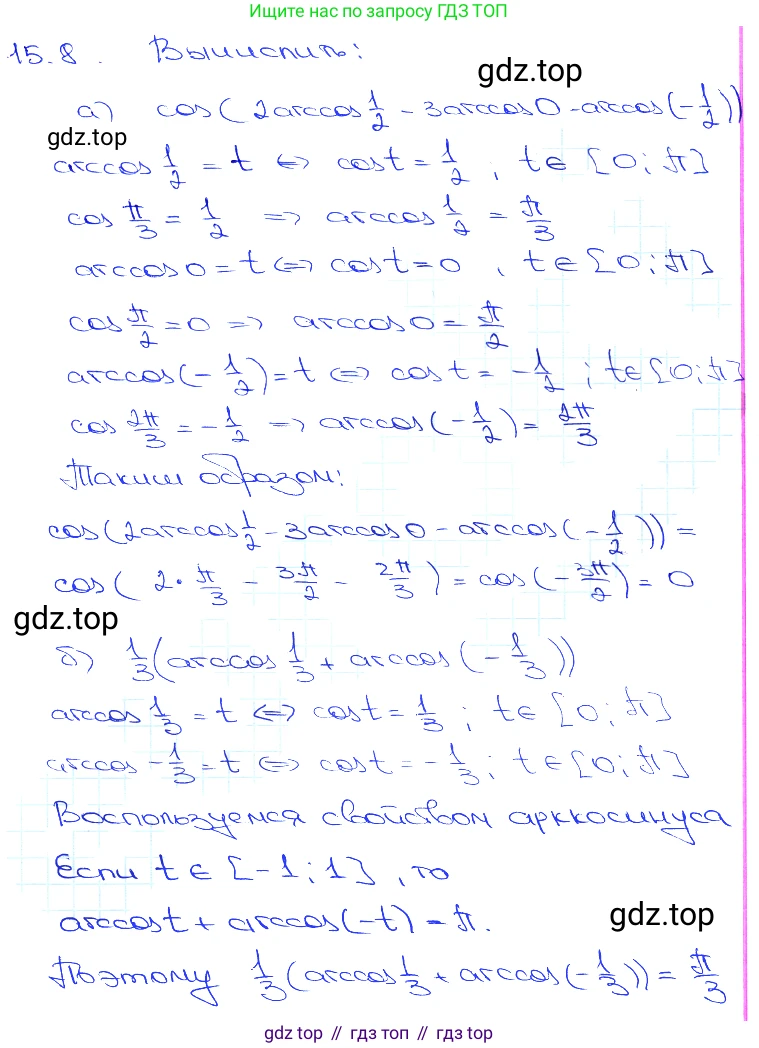 Ищите нас по запросу ГДЗ ТОП
15.8. Вычислить:
gdz.top
а) cos(2arccos 1/2 - 3arccos0 - arccos(-1/2))
gdz.top
arccos 1/2 = t <=> cost = 1/2 ; t∈[0; π]
cos π/3 = 1/2 => arccos 1/2 = π/3
arccos0 = t <=> cost = 0 , t∈[0; π]
cos π/2 = 0 => arccos0 = π/2
arccos(-1/2) = t <=> cost = -1/2 ; t∈[0; π]
cos 2π/3 = -1/2 => arccos(-1/2) = 2π/3
Таким образом:
cos(2arccos 1/2 - 3arccos0 - arccos(-1/2)) =
cos(2·π/3 - 3π/2 - 2π/3) = cos(-3π/2) = 0
gdz.top
б) 1/3(arccos 1/3 + arccos(-1/3))
arccos 1/3 = t <=> cost = 1/3 ; t∈[0; π]
arccos -1/3 = t <=> cost = -1/3 ; t∈[0; π]
Воспользуемся свойством арккосинуса
Если t∈[-1; 1], то
arccost + arccos(-t) = π.
gdz.top
Поэтому 1/3(arccos 1/3 + arccos(-1/3)) = π/3
gdz top // гдз топ // gdz.top